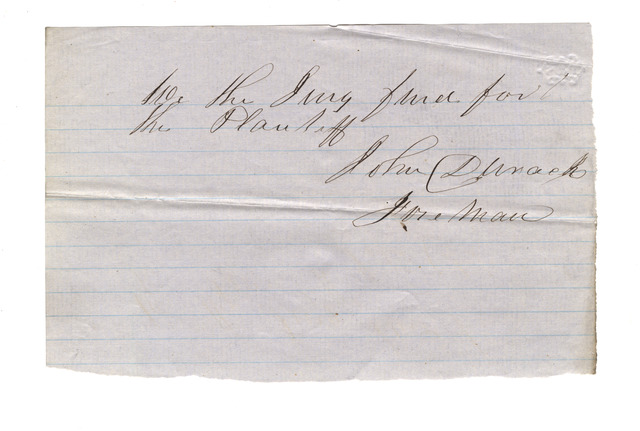 We the Jury find for
the Plantiff
John Durack
Foreman